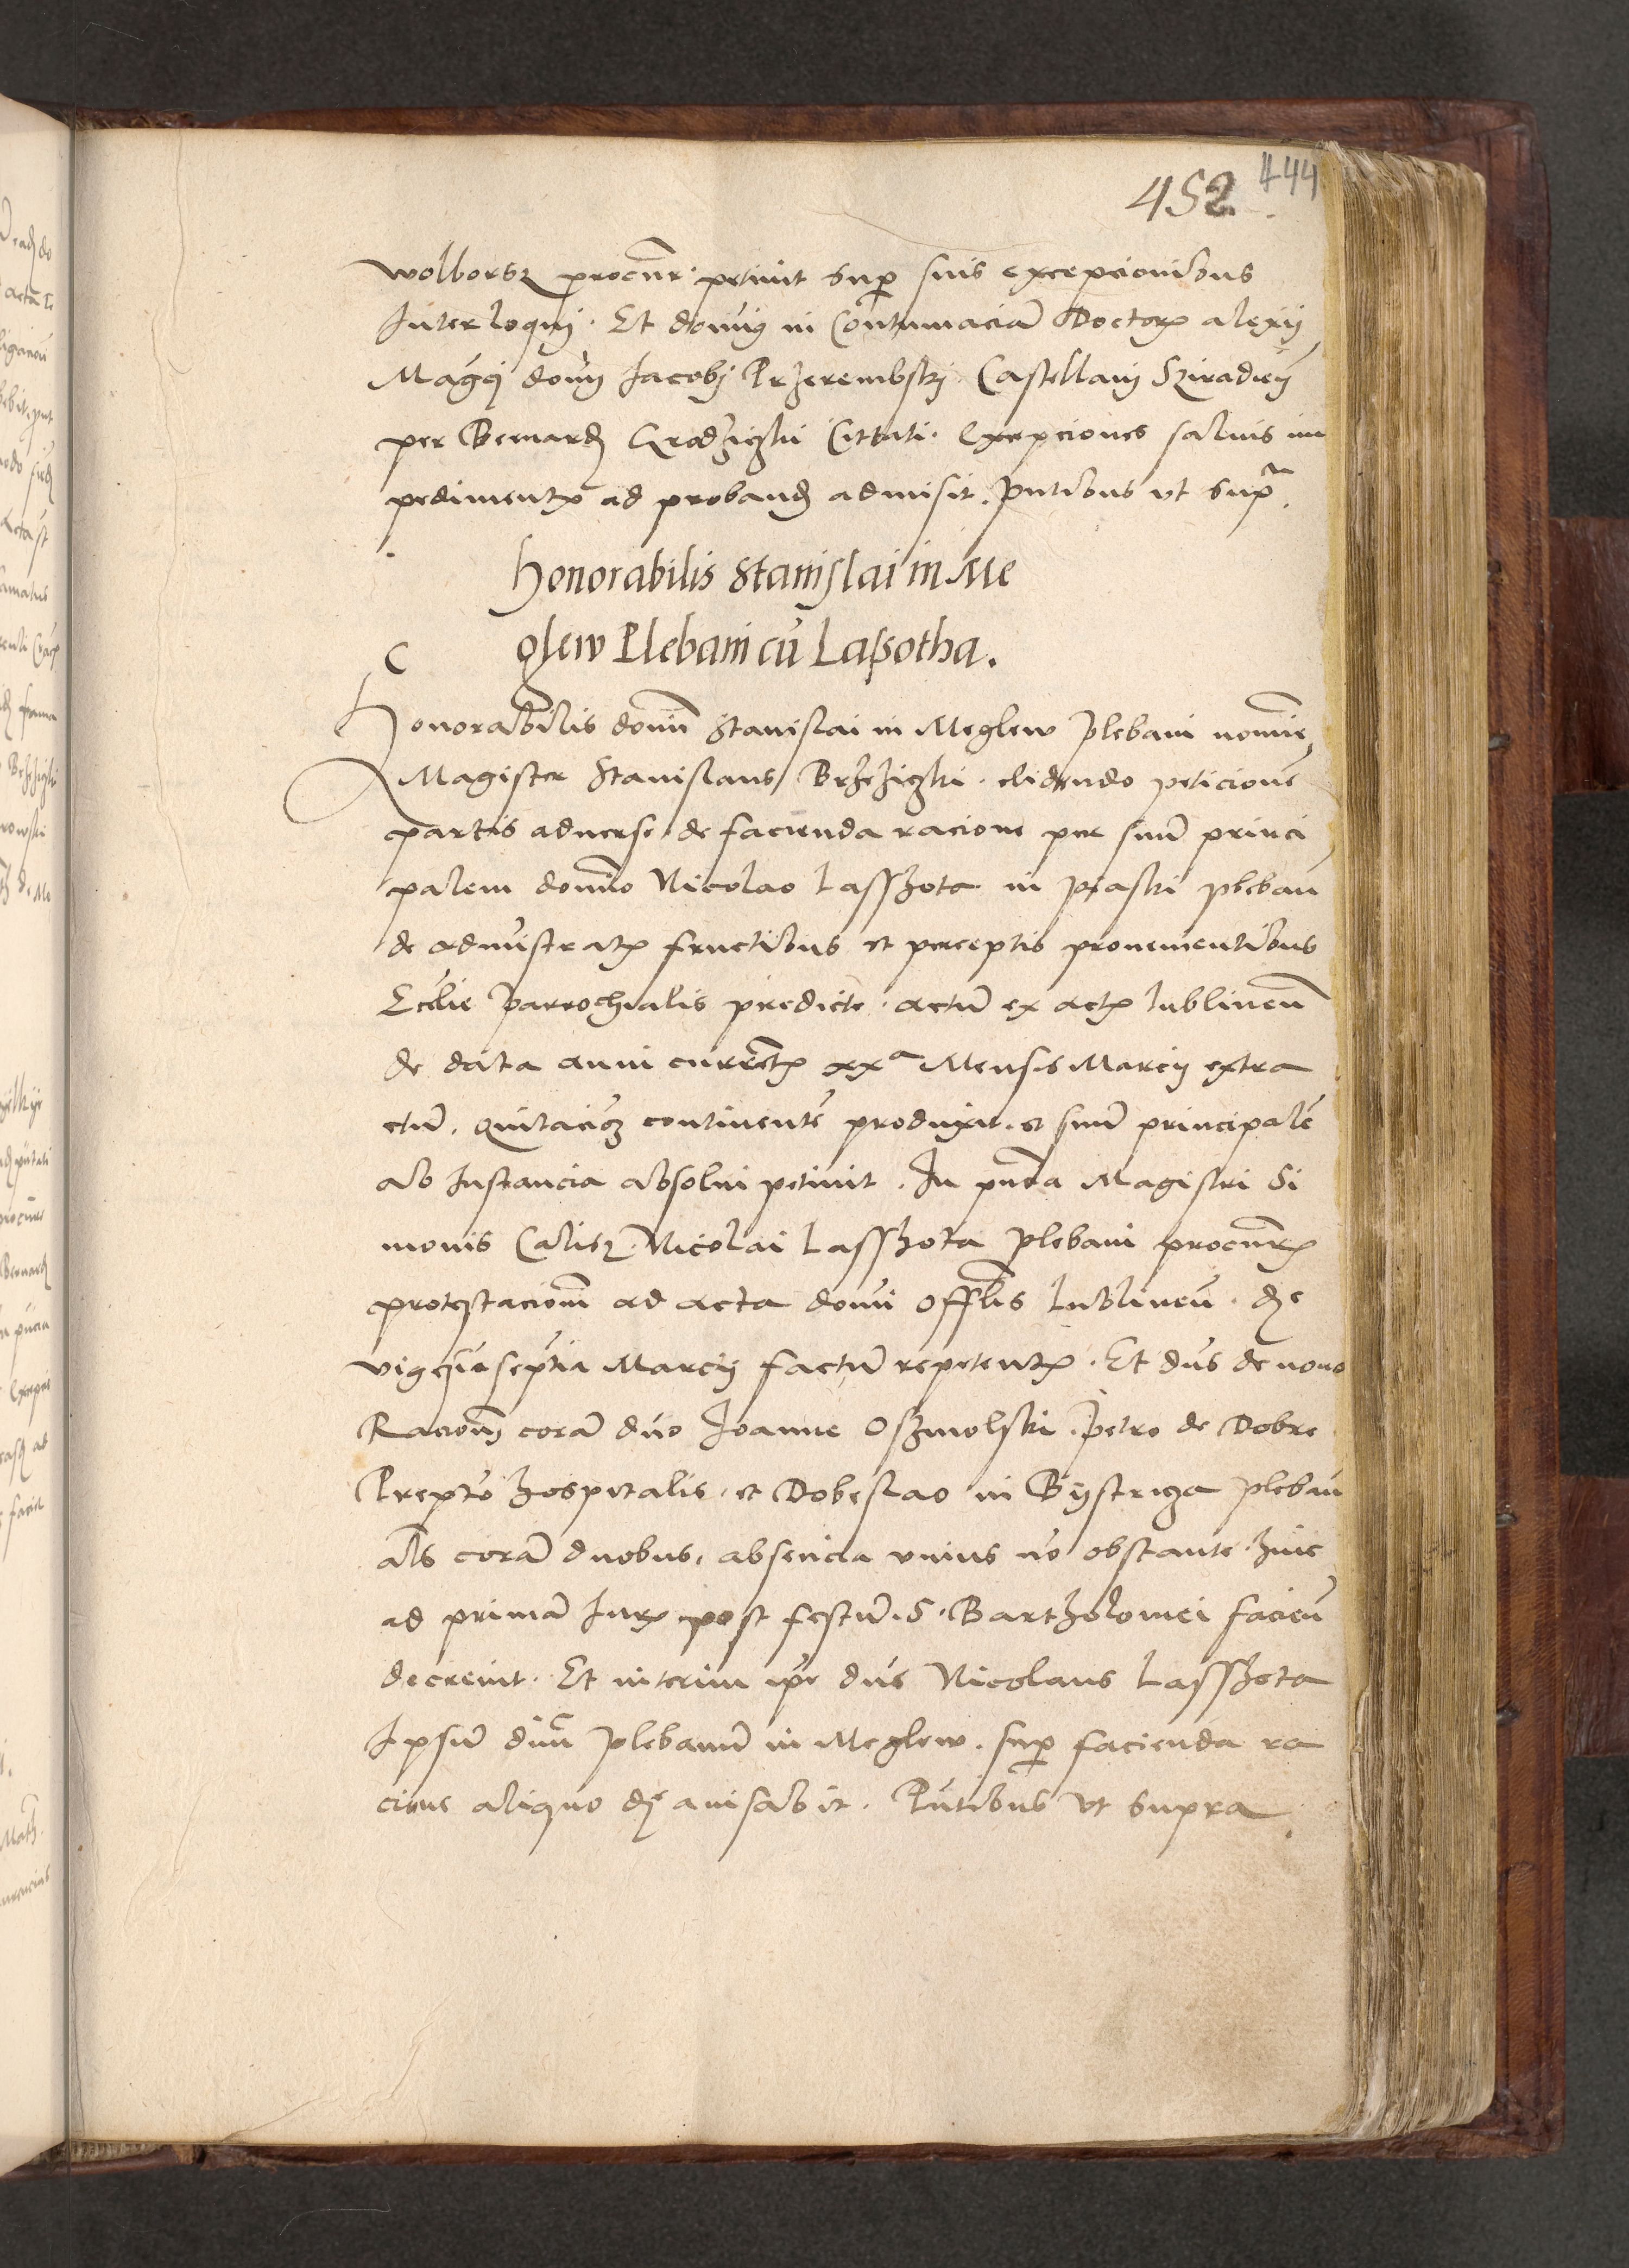 452 444
wolborsz procur. petivit Sup suis excepcionibus
Interloqui. Et domin9 in Contumaciã Doctor Alexij
Magci domi Jacobi Przerembski Castellani Sziradien
per Bernard Grodziczki Cittati. Excepciones salvis im
pediment ad proband admisit. pntibus ut Supª.
Honorabilis Stanislai in Me
glew Plebani cũ Lasotha.
C
Honorabilis domini Stanislai in Meglew Plebani nomine
Magister Stanislaus Brzeziczki. elidendo peticionẽ
partis adverse de facienda racione per suũ princi
palem domino Nicolao Lasszota in piaski pleban
de administrat fructibus et perceptis provenientibus
Ecclie parrochialis predicte. actũ ex act lublineñ
de data anni current xxª Mensis Marcij extra
ctũ. quitaciõ continentẽ produxit. et suũ principalẽ
ab Instancia absolvi petivit. In pñcia Magistri Si
monis Calisz. Nicolai Lasszota plebani procur
protestacionem ad acta domi Offlis lublineñ. die
vigesia septia Marcij factũ repetent. Et dñs de novo
Racionẽ corã dño Joanne Osmolski. petro de Dobre
Prepto hospitalis. et Dobeslao in Bystricza plebañ
als corã duobus. absencia unius nõ obstante. hinc
ad primã Jur post festũ. S. Bartholomei facieñ
decrevit. Et interim ipe dñs Nicolaus Lasszota
Ipsũ dñm plebanũ in Meglew. sup facienda ra
cione aliquo die avisabit. Pñtibus ut Supra.